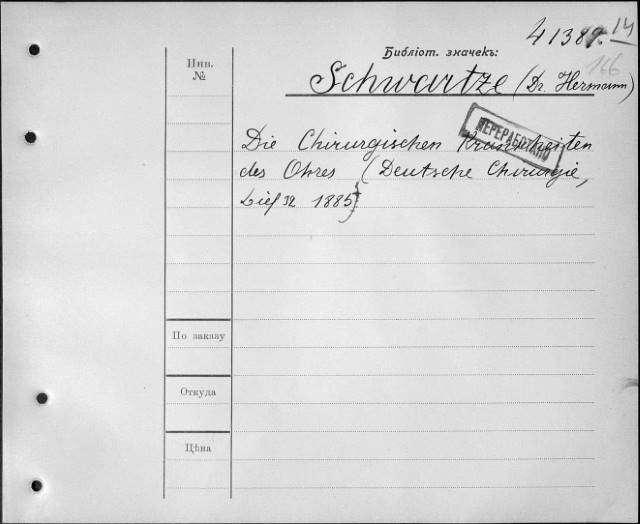 41389. 14
166
Библіот. значекъ:
Инв.
№
Schwartze (Dr. Hermann)
ПЕРЕРАБОТАНО
Die Chirurgischen Krankheiten
des Ohres (Deutsche Chirurgie,
Lief 32 1885)
По заказу
Откуда
Цѣна